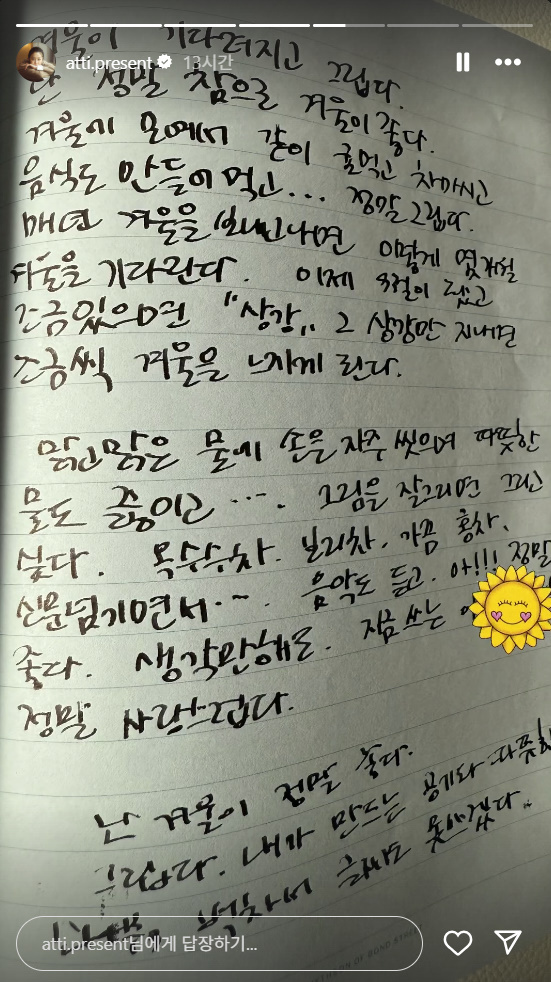 atti.present 13시간
겨울이 기다려지고 그립다.
난 정말 참으로 겨울이 좋다.
겨울에 모여서 같이 귤먹고 차마시고
음식도 만들어 먹고... 정말 그립다.
매년 겨울을 보내고나면 이렇게 몇개월
겨울을 기다린다. 이제 9월이 됐고
조금있으면 "상강" 그 상강만 지나면
조금씩 겨울을 느끼게 된다.
맑고맑은 물에 손을 자주 씻으며 따뜻한
물도 끓이고 .... 그림을 잘그리면 그리고
싶다. 옥수수차. 보리차. 가끔 홍차.
신문넘기면서.... 음악도 듣고. 아!!! 정말
좋다. 생각만해도. 지금 쓰는
정말 사랑스럽다.
난 겨울이 정말 좋다.
그립다. 내가 만드는 용기와
벅차서 글씨도 못쓰겠다.
atti.present님에게 답장하기...